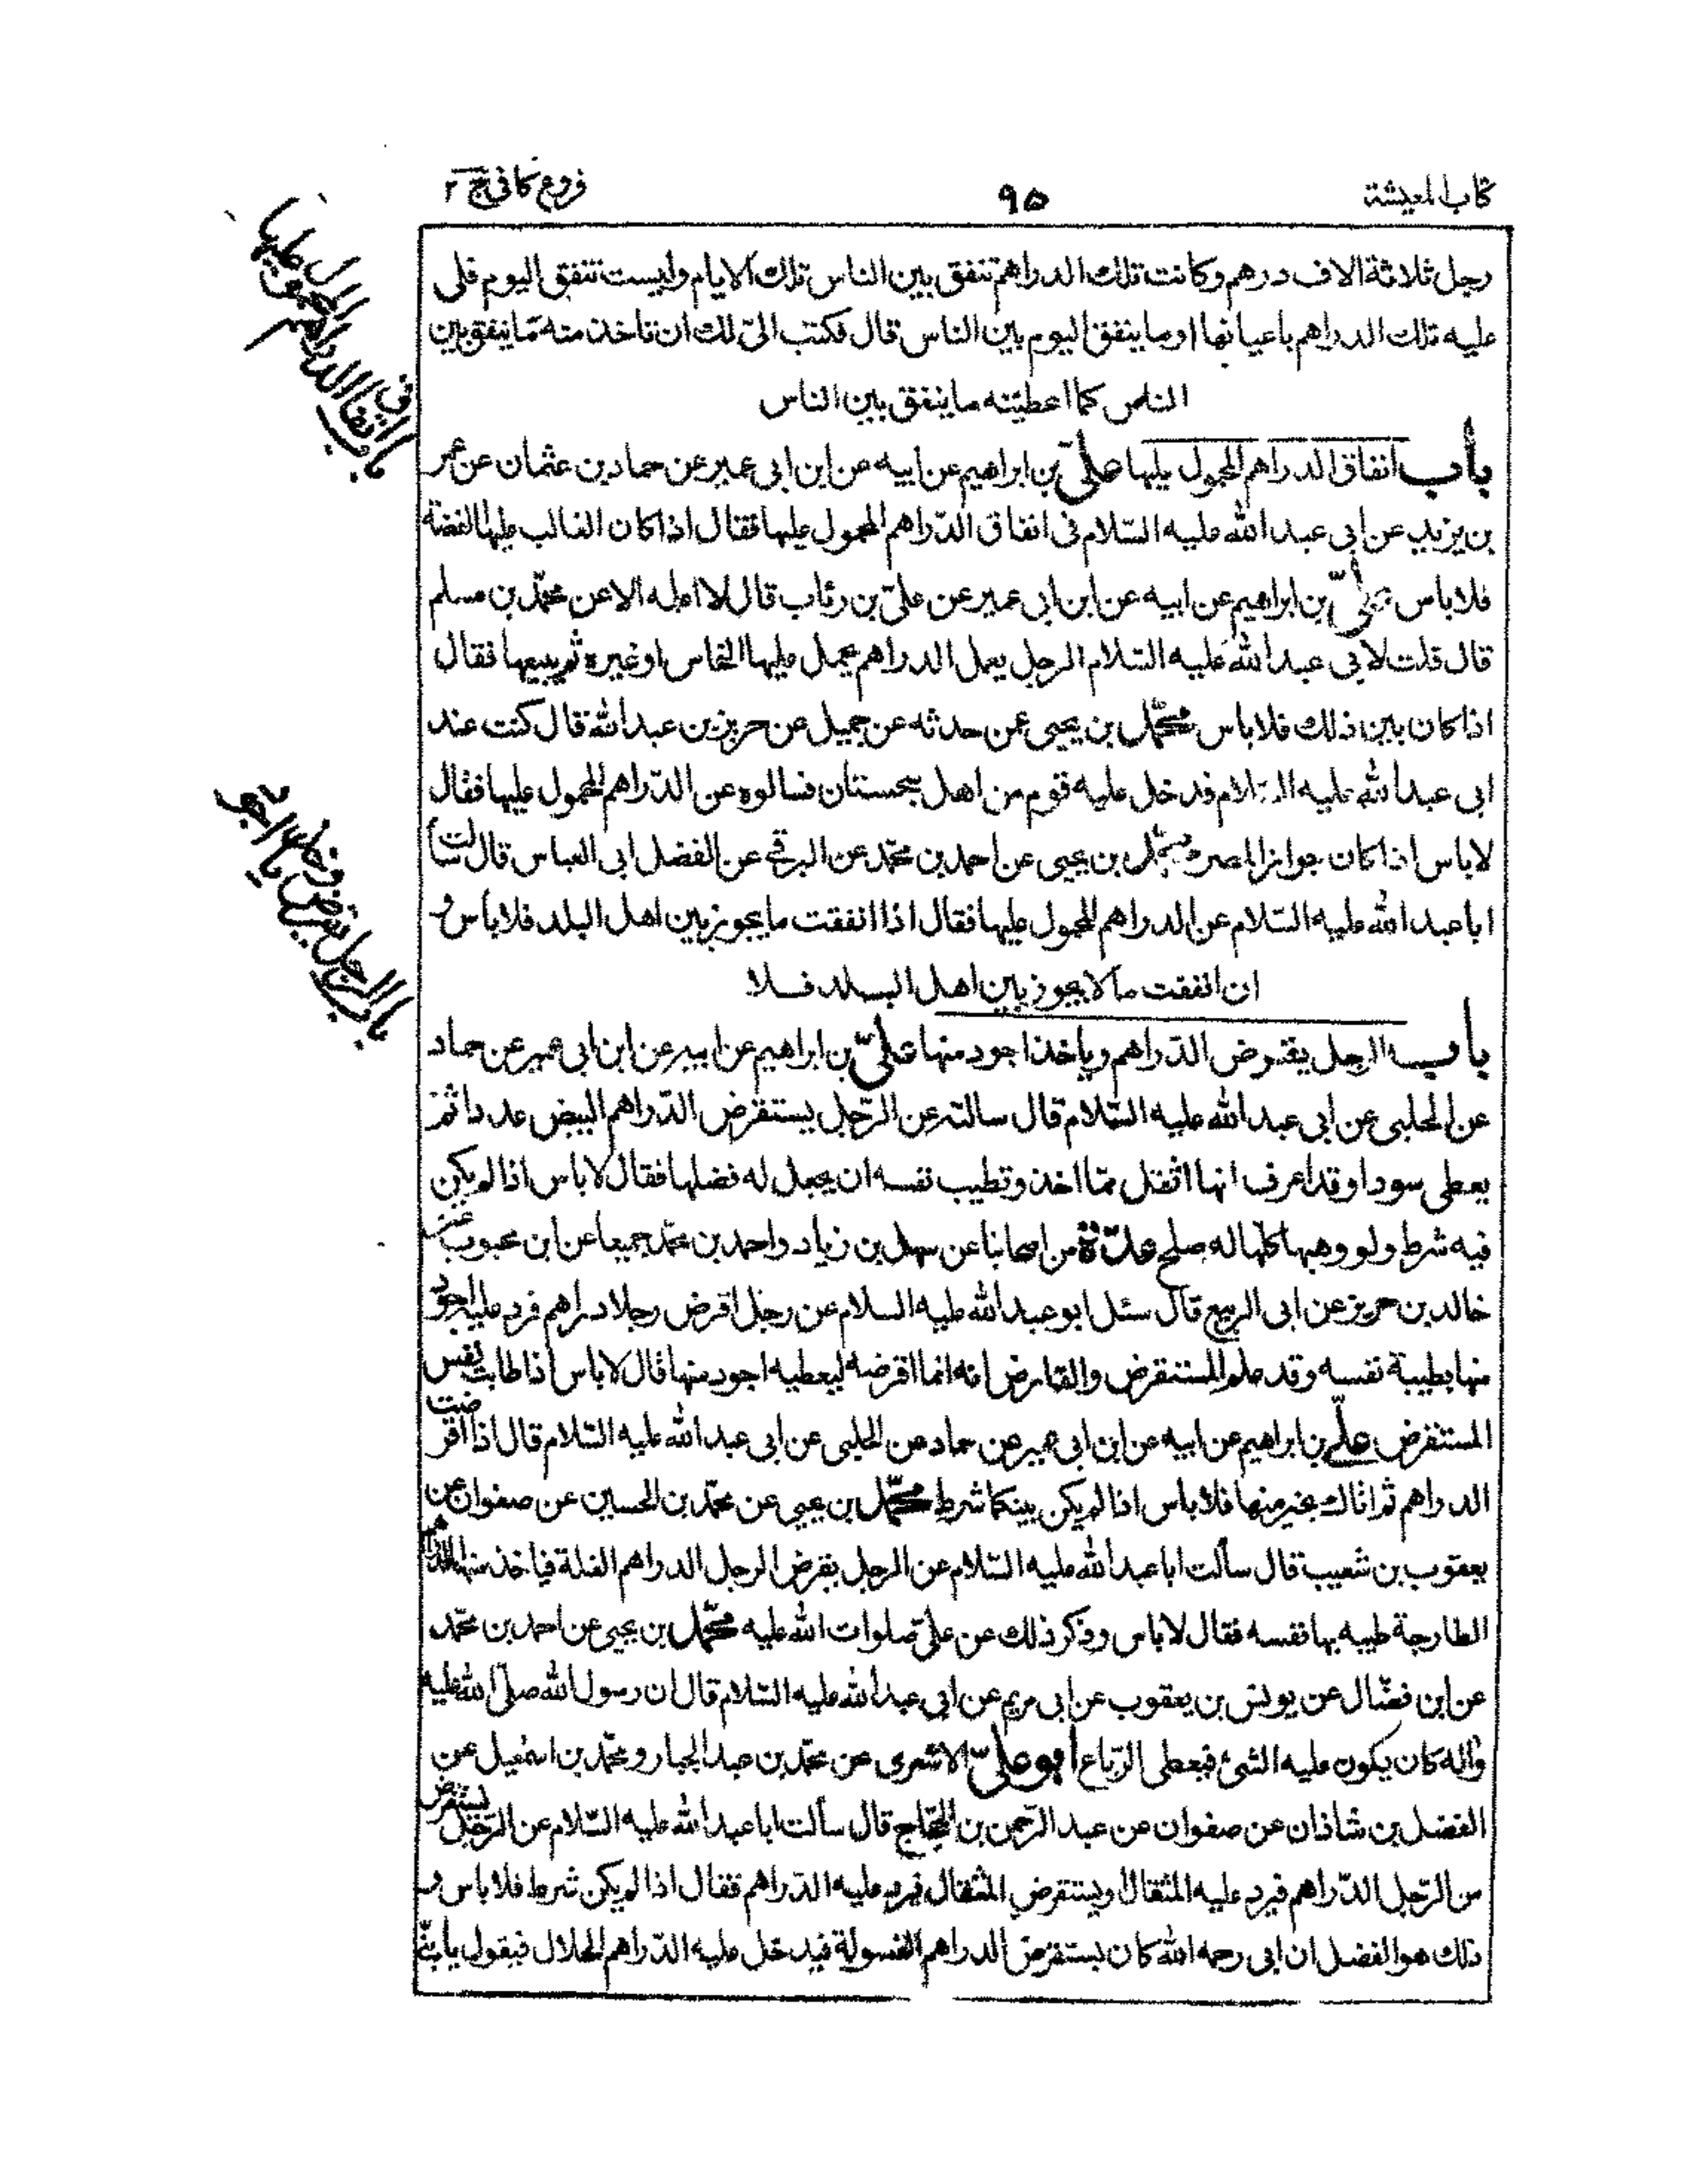 كتاب المعيشة
٩٥
فروع كافى ج ٢
رجل ثلاثة الاف درهم وكانت تلك الدراهم تنفق بين الناس تلك الايام وليست تنفق اليوم فلى
عليه تلك الدراهم باعيانها او ما ينفق اليوم بين الناس قال فكتب الىّ لك ان تاخذ منه ما ينفق بين
الناس كما اعطيته ما ينفق بين الناس
باب انفاق الدراهم المحمول عليها علىّ بن ابراهيم عن ابيه عن ابن ابى عمير عن حماد بن عثمان عن عمر
بن يزيد عن ابى عبد الله عليه السّلام فى انفاق الدّراهم المحمول عليها فقال اذا كان الغالب عليها الفضة
فلا باس علىّ بن ابراهيم عن ابيه عن ابن ابى عمير عن علىّ بن رئاب قال لا اعلمه الا عن محمّد بن مسلم
قال قلت لابى عبد الله عليه السّلام الرجل يعمل الدراهم يحمل عليها النحاس او غيره ثم يبيعها فقال
اذا كان بين ذلك فلا باس محمّد بن يحيى عمن حدثه عن جميل عن حريز بن عبد الله قال كنت عند
ابى عبد الله عليه السّلام فدخل عليه قوم من اهل سجستان فسالوه عن الدّراهم المحمول عليها فقال
لا باس اذا كان جواز المصر محمّد بن يحيى عن احمد بن محمّد عن البرقى عن الفضل ابى العباس قال سالت
ابا عبد الله عليه السّلام عن الدراهم المحمول عليها فقال اذا انفقت ما يجوز بين اهل البلد فلا باس و
ان انفقت ما لا يجوز بين اهل البلد فلا
باب الرجل يقرض الدّراهم وياخذ اجود منها علىّ بن ابراهيم عن ابيه عن ابن ابى عمير عن حماد
عن الحلبى عن ابى عبد الله عليه السّلام قال سالته عن الرّجل يستقرض الدّراهم البيض عددا ثم
يعطى سودا وقد اعرف انها اثقل مما اخذ وتطيب نفسه ان يجعل له فضلها فقال لا باس اذا لم يكن
فيه شرط ولو وهبها كلها له صلح عدّة من اصحابنا عن سهل بن زياد واحمد بن محمّد جميعا عن ابن محبوب عن
خالد بن حريز عن ابى الربيع قال سئل ابو عبد الله عليه السلام عن رجل اقرض رجلا دراهم فرد عليه اجود
منها بطيبة نفسه وقد علم المستقرض والقارض انه انما اقرضه ليعطيه اجود منها قال لا باس اذا طابت نفس
المستقرض علىّ بن ابراهيم عن ابيه عن ابن ابى عمير عن حماد عن الحلبى عن ابى عبد الله عليه السّلام قال اذا اقرضت
الدراهم ثم اتاك بخير منها فلا باس اذا لم يكن بينكما شرط محمّد بن يحيى عن محمّد بن الحسين عن صفوان عن
يعقوب بن شعيب قال سألت ابا عبد الله عليه السّلام عن الرجل يقرض الرجل الدراهم الغلة فياخذ منها الدراهم
الطازجة طيبه بها نفسه فقال لا باس وذكر ذلك عن علىّ صلوات الله عليه محمّد بن يحيى عن احمد بن محمّد
عن ابن فضّال عن يونس بن يعقوب عن ابى مريم عن ابى عبد الله عليه السّلام قال ان رسول الله صلى الله عليه
وآله كان يكون عليه الشئ فيعطى الرّباع ابو علىّ الاشعرى عن محمّد بن عبد الجبار ومحمّد بن اسمعيل عن
الفضل بن شاذان عن صفوان عن عبد الرّحمن بن الحجّاج قال سألت ابا عبد الله عليه السّلام عن الرّجل يستقرض
من الرّجل الدّراهم فيرد عليه المثقال ويستقرض المثقال فيرد عليه الدّراهم فقال اذا لم يكن شرط فلا باس و
ذلك هو الفضل ان ابى رحمه الله كان يستقرض الدراهم الفسولة فيدخل عليه الدّراهم الحلال فيقول يا بنىّ
باب انفاق الدراهم المحمول عليها
باب الرجل يقرض